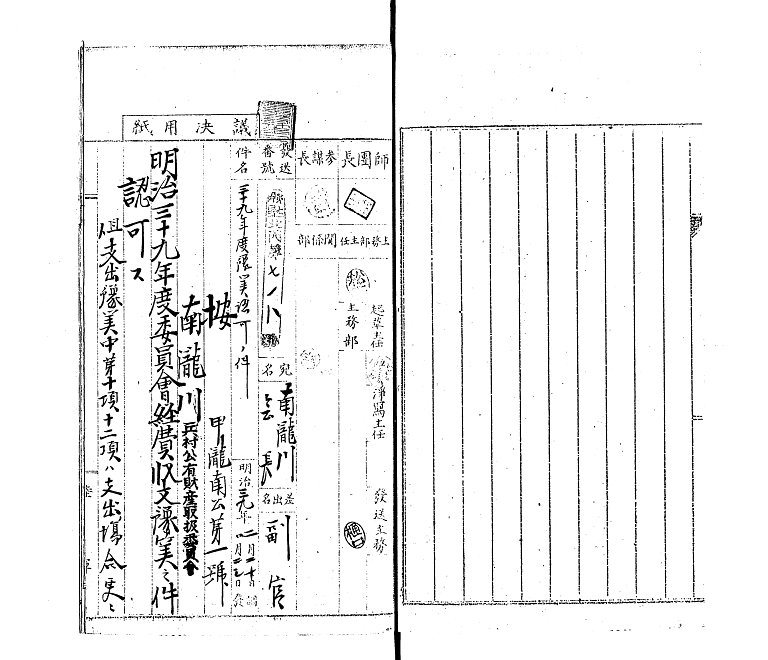 議決用紙
師團長
參謀長
主務部主任
關係部
起草主任
淨寫主任
主務部
發送主務
發送番號
七一八
宛名
南瀧川
会長
差出名
副官
件名
三十九年度豫算認可ノ件
明治三九年
按
甲瀧南公第一號
南瀧川兵村公有財産取扱委員會
明治三十九年度委員會経費収支豫算之件
認可ス
但支出豫算中第十項十二項ハ支出場合更ニ